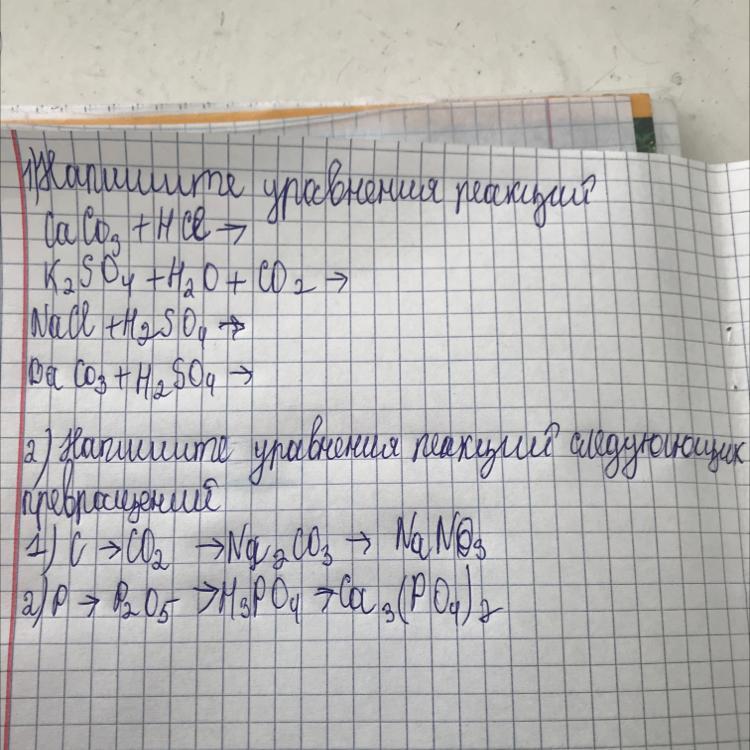 1) Напишите уравнения реакций
CaCO₃ + HCl →
K₂SO₄ + H₂O + CO₂ →
NaCl + H₂SO₄ →
CO₃ + H₂SO₄ →
2) Напишите уравнения реакций следующих
превращений
1) C → CO₂ → Na₂CO₃ → NaNO₃
2) P → P₂O₅ → H₃PO₄ → Ca₃(PO₄)₂